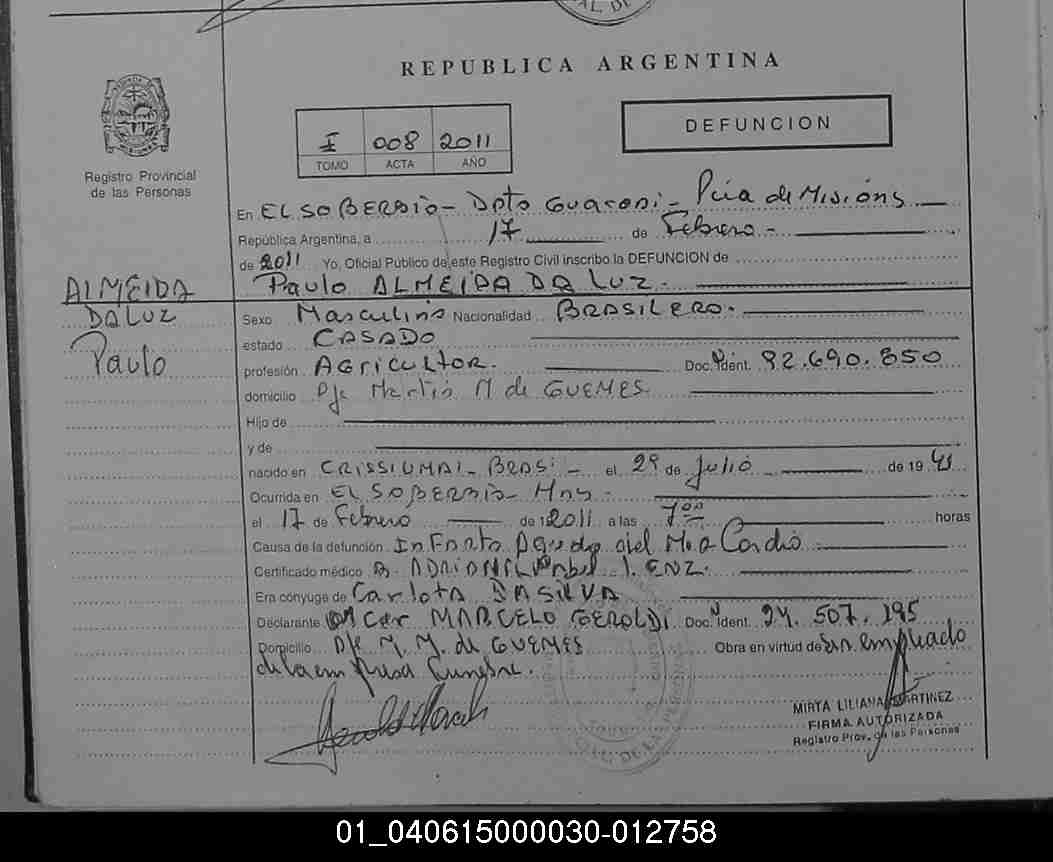 REPUBLICA ARGENTINA
I 008 2011
TOMO ACTA AÑO
DEFUNCION
Registro Provincial
de las Personas
En EL SOBERBIO - Dpto Guarani - Pcia de Misiones
República Argentina, a 17 de Febrero -
de 2011 Yo, Oficial Público de este Registro Civil inscribo la DEFUNCION de
Paulo ALMEIDA DA LUZ.
ALMEIDA
DA LUZ
Paulo
Sexo Masculino Nacionalidad BRASILERO.
estado CASADO
profesión AGRICULTOR. Doc. Ident. 92.690.850
domicilio Pje Martin M de GUEMES.
Hijo de
y de
nacido en CRISSIUMAL - BRASIL - el 29 de Julio de 19 41
Ocurrida en EL SOBERBIO - Mns -
el 17 de Febrero de 2011 a las 7 horas
Causa de la defunción Infarto Agudo del Miocardio
Certificado médico
Era cónyuge de Carlota DA SILVA
Declarante Oscar MARCELO GEROLDI Doc. Ident. 24.507.195
Domicilio Pje M. M. de GUEMES Obra en virtud de ser empleado
de la empresa Funebre.
MIRTA LILIANA MARTINEZ
FIRMA AUTORIZADA
Registro Prov. de las Personas
01_040615000030-012758